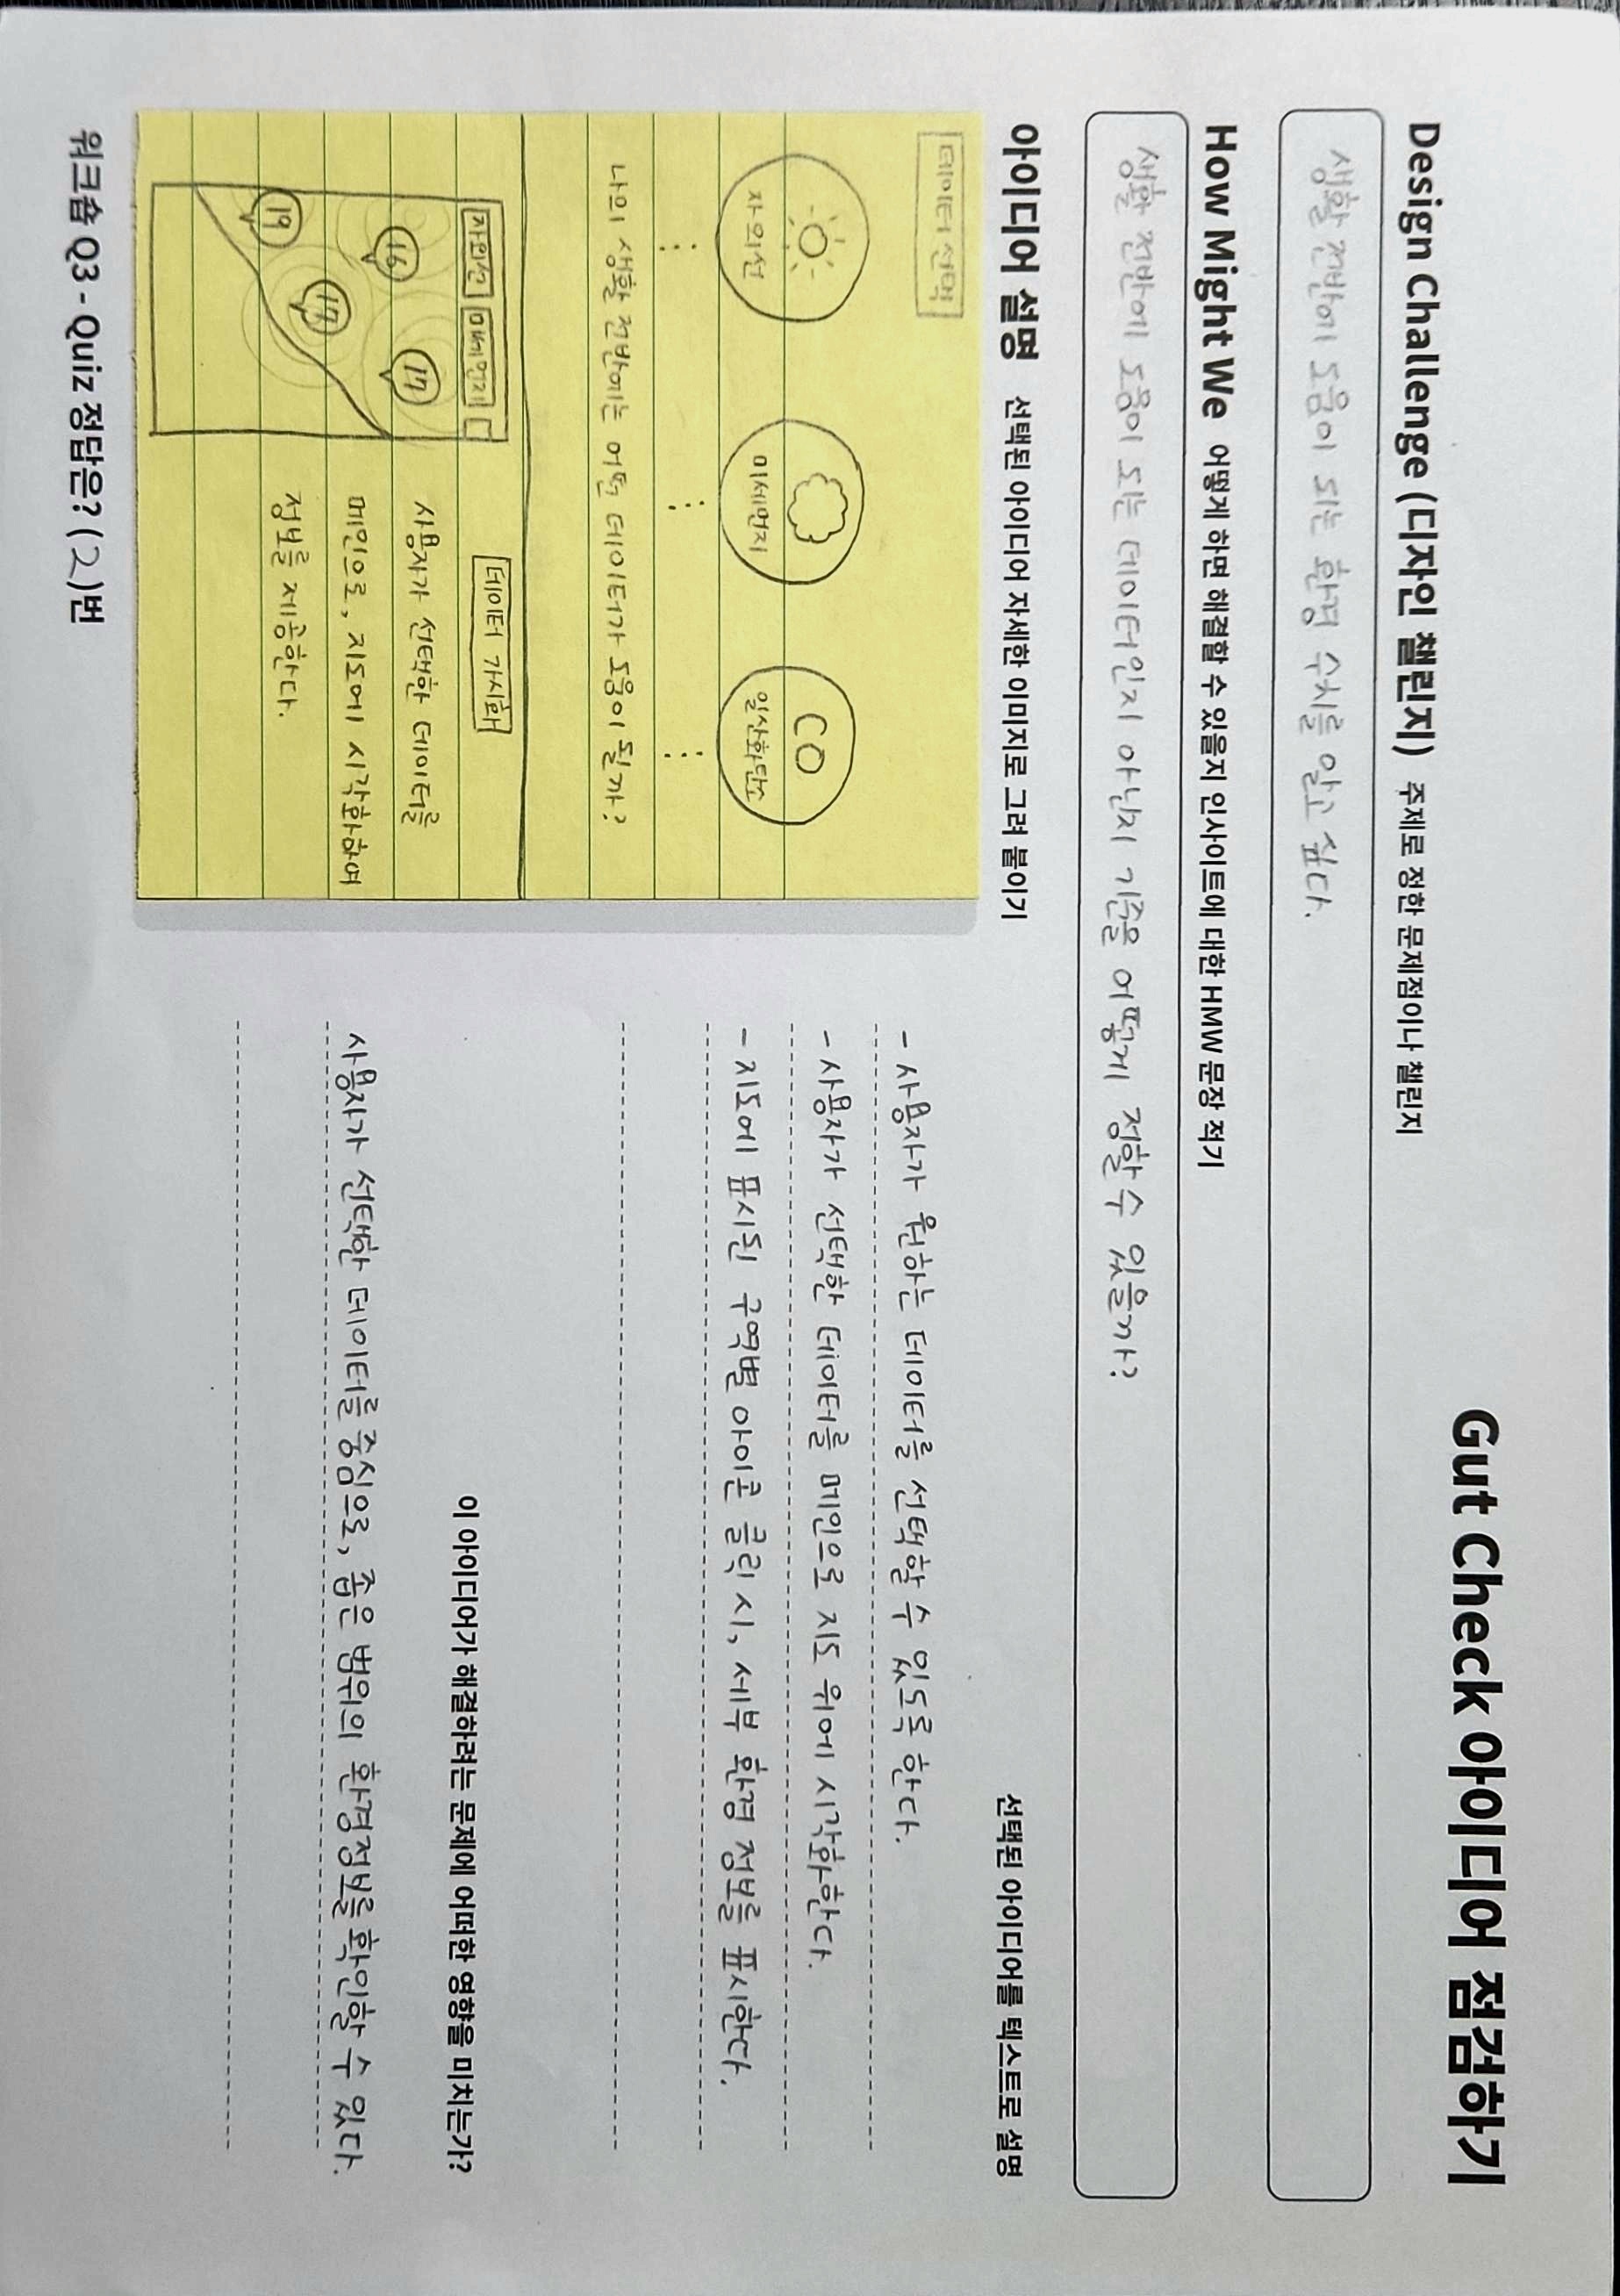 Gut Check 아이디어 점검하기
Design Challenge (디자인 챌린지) 주제로 정한 문제점이나 챌린지
생활 전반에 도움이 되는 환경 수치를 알고 싶다.
How Might We 어떻게 하면 해결할 수 있을지 인사이트에 대한 HMW 문장 적기
생활 전반에 도움이 되는 데이터인지 아닌지 기준을 어떻게 정할 수 있을까?
아이디어 설명 선택된 아이디어 자세한 이미지로 그려 붙이기
데이터 선택
자외선
미세먼지
CO
일산화탄소
나의 생활 전반에는 어떤 데이터가 도움이 될까?
자외선 미세먼지
16
17
17
19
데이터 가시화
사용자가 선택한 데이터를
메인으로, 지도에 시각화하여
정보를 제공한다.
선택된 아이디어를 텍스트로 설명
- 사용자가 원하는 데이터를 선택할 수 있도록 한다.
- 사용자가 선택한 데이터를 메인으로 지도 위에 시각화한다.
- 지도에 표시된 구역별 아이콘 클릭 시, 세부 환경 정보를 표시한다.
이 아이디어가 해결하려는 문제에 어떠한 영향을 미치는가?
사용자가 선택한 데이터를 중심으로, 좁은 범위의 환경정보를 확인할 수 있다.
워크숍 Q3 - Quiz 정답은? (2)번